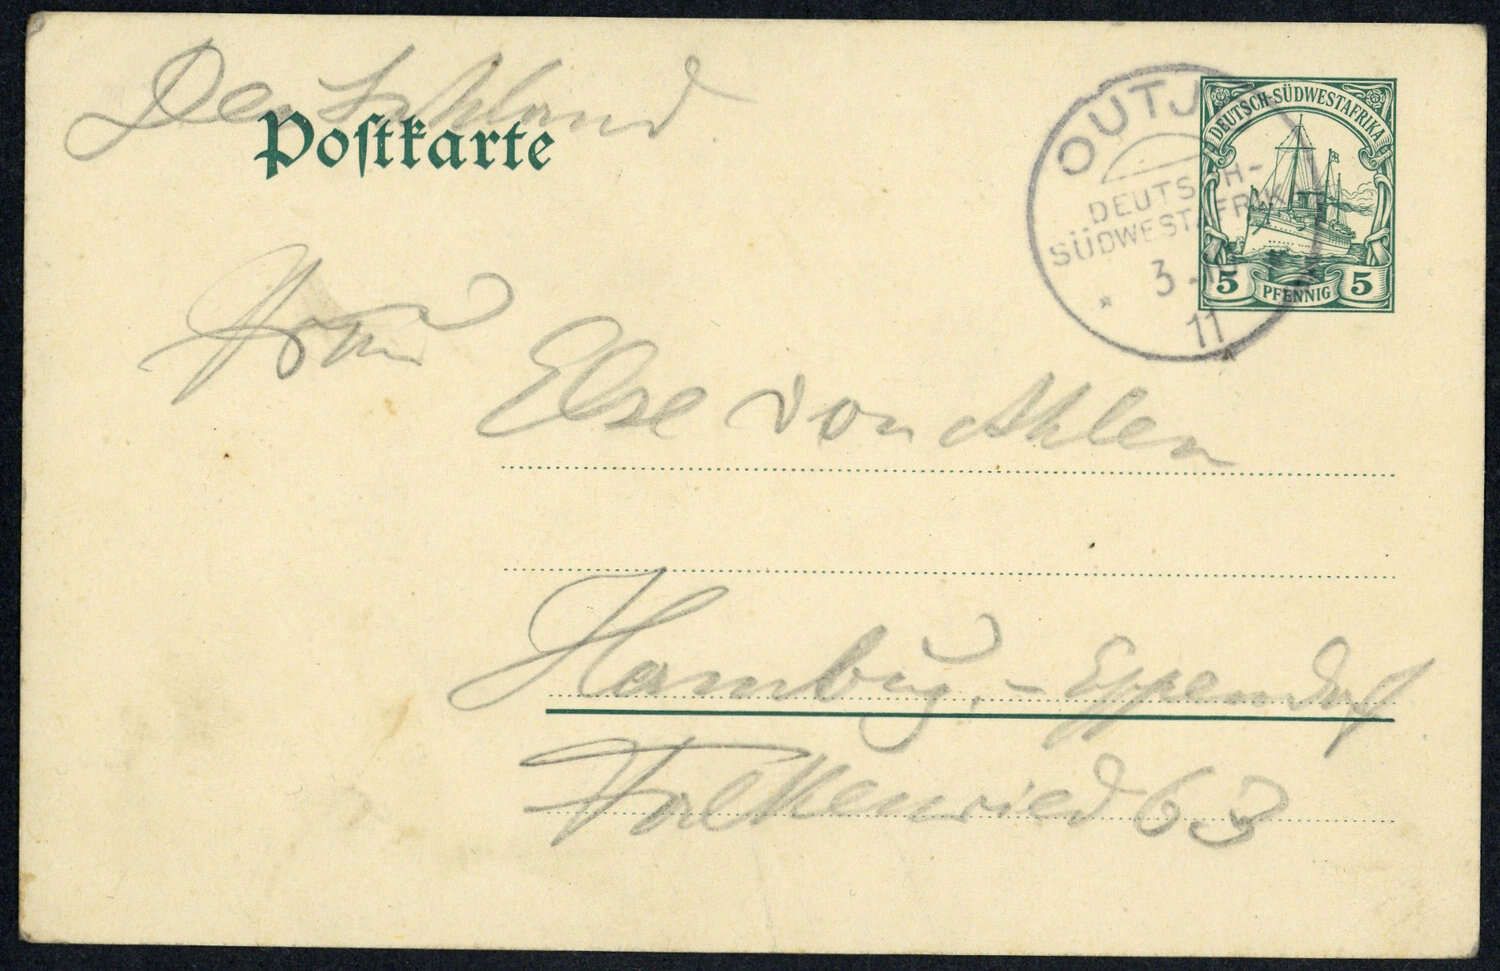 Deutschland.
Postkarte
OUTJ
DEUTSCH-
SÜDWESTAFRIK
3
11
DEUTSCH-SÜDWESTAFRIKA
5 PFENNIG 5
Frau
Else von Ahlen
Hamburg, - Eppendorf
Falkenried 63